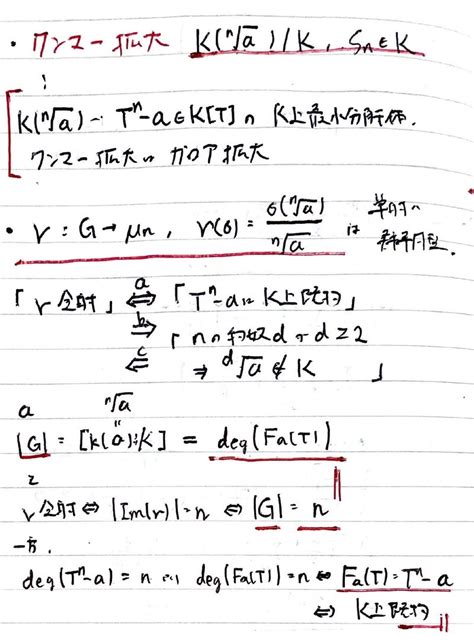 ・クンマー拡大 K(ⁿ√a)/K, ζn∈K
K(ⁿ√a) … Tⁿ-a∈K[T]の K上最小分解体.
クンマー拡大は ガロア拡大
・r : G→μn, r(σ) = σ(ⁿ√a)/ⁿ√a は 単射の 準同型.
「r全射」 ⇔ 「Tⁿ-aは K上既約」 a
⇒ 「nの約数d で d≧2 b
⇐ ⇒ ᵈ√a ∉ K 」 c
a ⁿ√a
|G| = [K(α):K] = deg(Fα(T))
r全射 ⇔ |Im(r)| = n ⇔ |G| = n
一方,
deg(Tⁿ-a) = n deg(Fα(T)) = n ⇔ Fα(T) = Tⁿ-a
⇔ K上既約